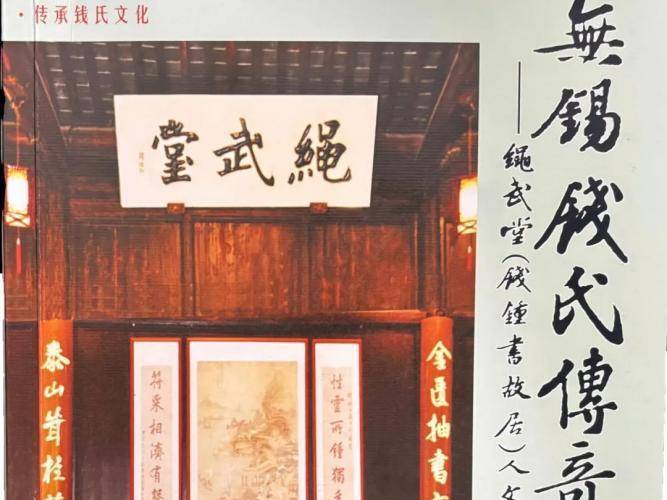 ·传承钱氏文化
無錫錢氏傳
——繩武堂(錢鍾書故居)人文
繩武堂
金匱抽書
泰山茸
性靈所鍾獨
符采相濟有